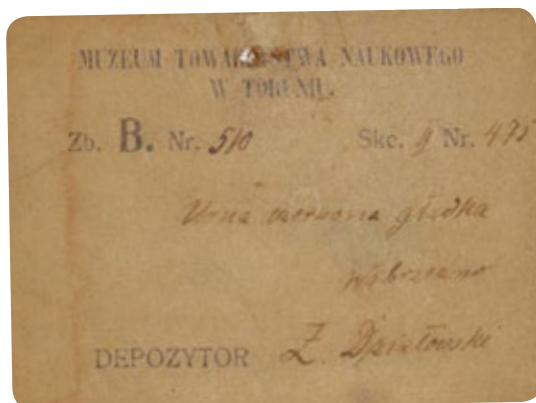 MUZEUM TOWARZYSTWA NAUKOWEGO
W TORUNIU.
Zb. B. Nr. 510 Skc. II Nr. 475
Urna czerwona gładka
DEPOZYTOR Z. Działowski